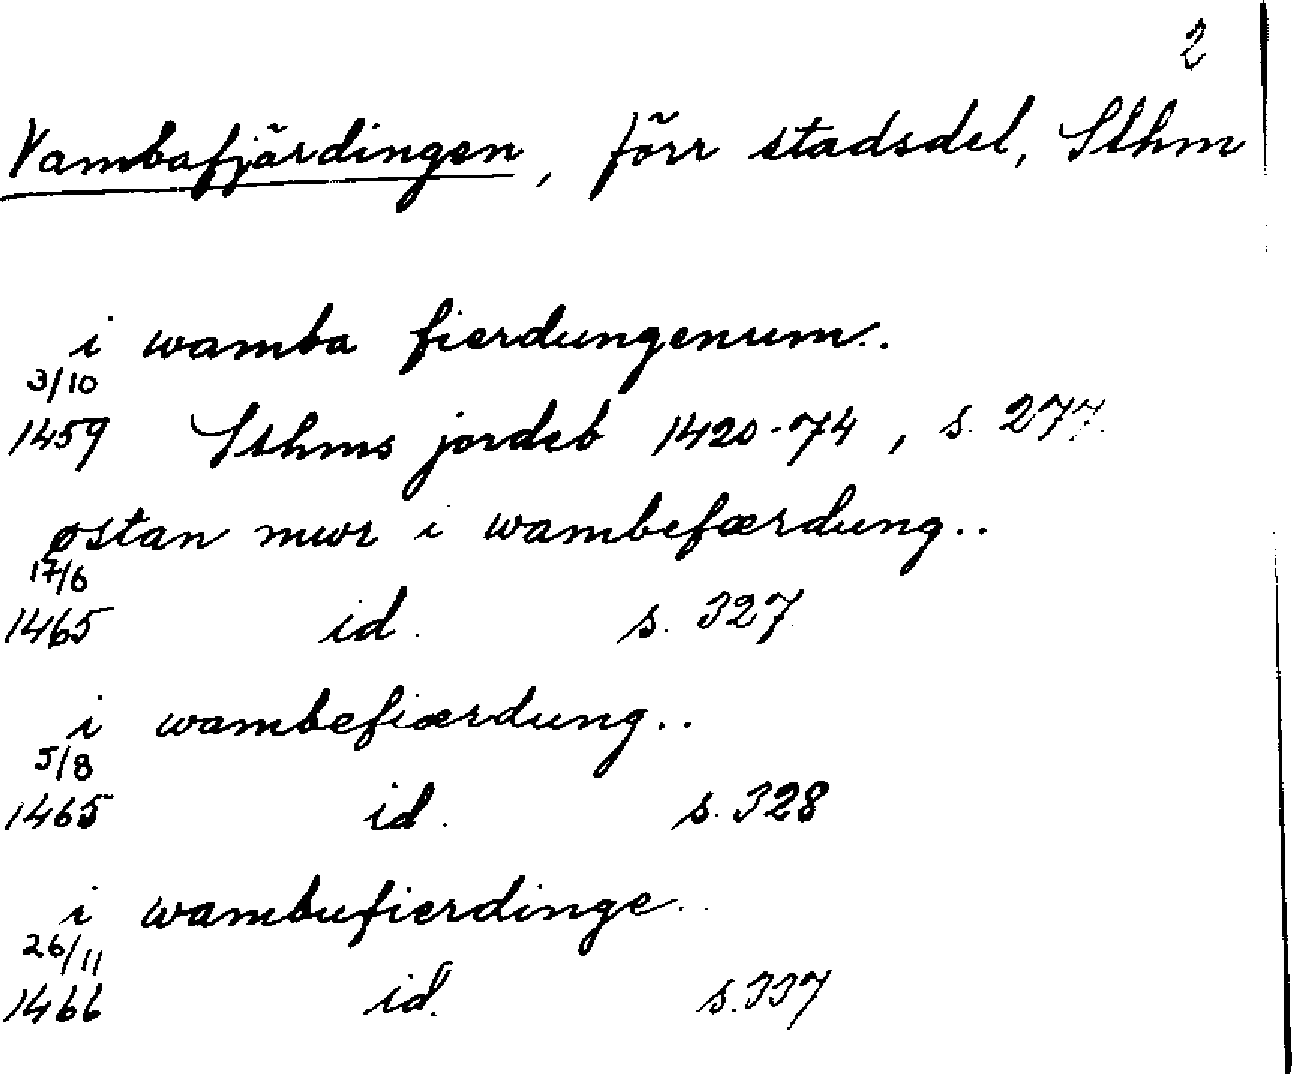 2
Vambafjärdingen, förr stadsdel, Sthm
i wamba fierdungenum..
3/10
1459 Sthms jordeb 1420-74, s. 277.
østan mwr i wambefærdung..
17/6
1465 id. s. 327
i wambefiærdung..
5/8
1465 id. s. 328
i wambufierdinge..
26/11
1466 id. s. 337